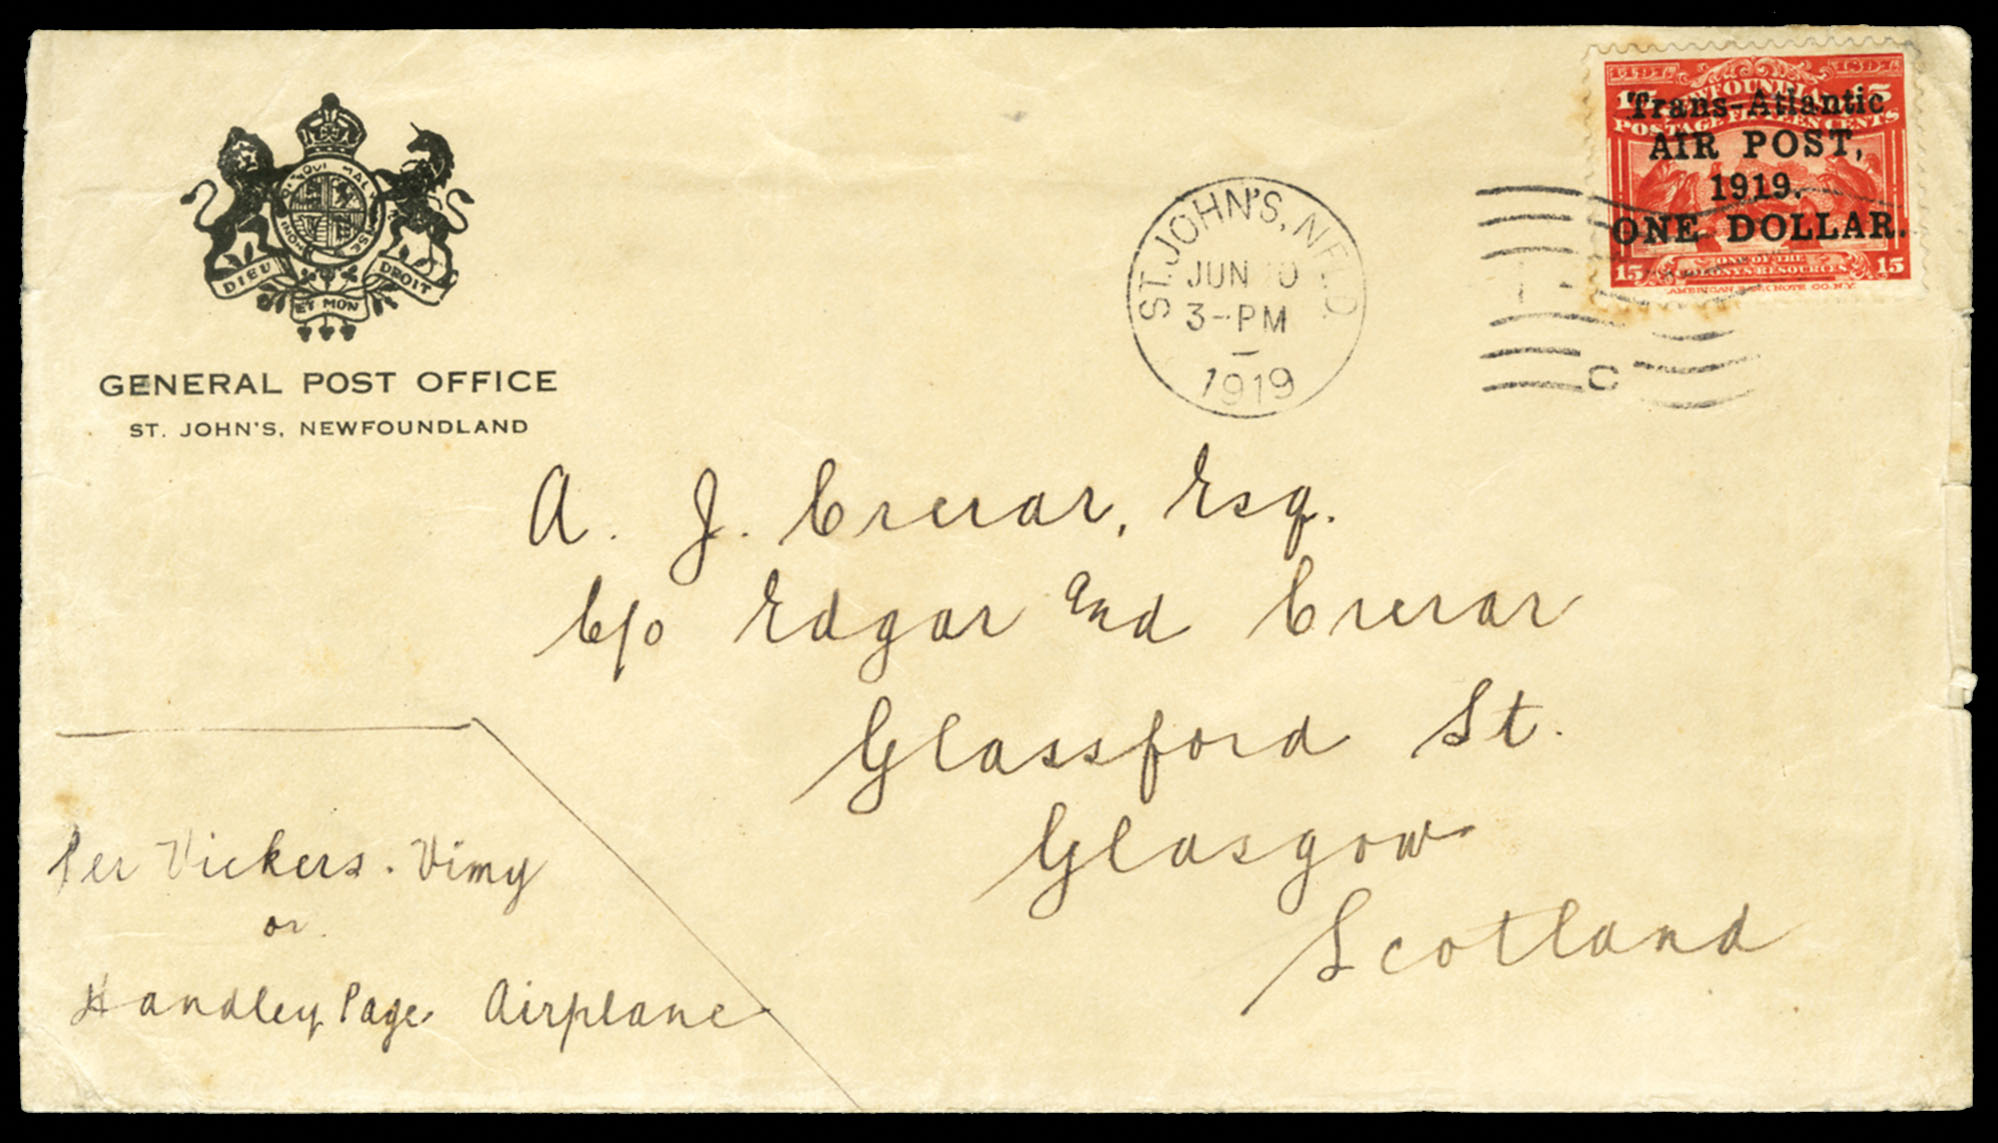 DIEU ET MON DROIT
GENERAL POST OFFICE
ST. JOHN'S, NEWFOUNDLAND
ST. JOHN'S, NFLD.
JUN
3-PM
1919
1897
NEWFOUNDLAND
POSTAGE FIFTEEN CENTS
Trans-Atlantic
AIR POST,
1919.
ONE DOLLAR.
15 ONE OF THE 15
COLONY'S RESOURCES
AMERICAN BANK NOTE CO. N.Y.
A. J. Crerar, Esq.
C/o Edgar and Crerar
Glassford St.
Glasgow
Scotland
Per Vickers. Vimy
or
Handley Page Airplane